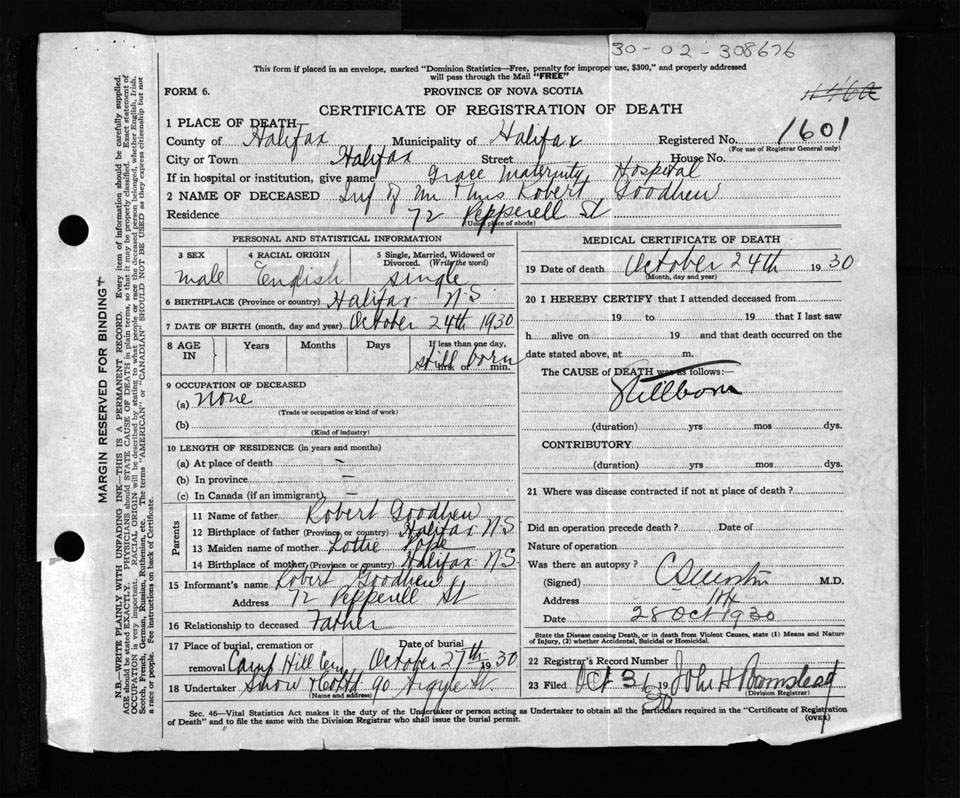 30-02-308676
This form if placed in an envelope, marked "Dominion Statistics—Free, penalty for improper use, $300," and properly addressed
will pass through the Mail "FREE"
FORM 6. PROVINCE OF NOVA SCOTIA
CERTIFICATE OF REGISTRATION OF DEATH
1 PLACE OF DEATH
County of Halifax Municipality of Halifax Registered No. 1601
(For use of Registrar General only)
City or Town Halifax Street House No.
If in hospital or institution, give name Grace Maternity Hospital
2 NAME OF DECEASED Inf of Mr & Mrs Robert Goodhew
Residence 72 Pepperell St
(Usual place of abode)
PERSONAL AND STATISTICAL INFORMATION
3 SEX 4 RACIAL ORIGIN 5 Single, Married, Widowed or
Divorced. (Write the word)
male English single
6 BIRTHPLACE (Province or country) Halifax N.S.
7 DATE OF BIRTH (month, day and year) October 24th 1930
8 AGE IN Years Months Days If less than one day,
hrs. or min.
still born
9 OCCUPATION OF DECEASED
(a) none
(Trade or occupation or kind of work)
(b)
(Kind of industry)
10 LENGTH OF RESIDENCE (in years and months)
(a) At place of death –
(b) In province –
(c) In Canada (if an immigrant) –
Parents
11 Name of father Robert Goodhew
12 Birthplace of father (Province or country) Halifax N.S.
13 Maiden name of mother Lottie Pope
14 Birthplace of mother (Province or country) Halifax N.S.
15 Informant's name Robert Goodhew
Address 72 Pepperell St
16 Relationship to deceased Father
17 Place of burial, cremation or Date of burial
removal Camp Hill Cem October 27th 1930
18 Undertaker Snow & Co Ltd 90 Argyle St
(Name and address)
MEDICAL CERTIFICATE OF DEATH
19 Date of death October 24th 1930
(Month, day and year)
20 I HEREBY CERTIFY that I attended deceased from
19 to 19 that I last saw
h alive on 19 and that death occurred on the
date stated above, at m.
The CAUSE of DEATH was as follows:—
Stillborn
(duration) yrs mos dys.
CONTRIBUTORY
(duration) yrs mos dys.
21 Where was disease contracted if not at place of death?
Did an operation precede death? Date of
Nature of operation
Was there an autopsy?
(Signed) M.D.
Address Hfx
Date 28 Oct 1930
State the Disease causing Death, or in death from Violent Causes, state (1) Means and Nature
of Injury, (2) whether Accidental, Suicidal or Homicidal.
22 Registrar's Record Number
23 Filed Oct 31 1930 John H
(Division Registrar)
Sec. 46—Vital Statistics Act makes it the duty of the Undertaker or person acting as Undertaker to obtain all the particulars required in the "Certificate of Registration
of Death" and to file the same with the Division Registrar who shall issue the burial permit. (OVER)
MARGIN RESERVED FOR BINDING
N.B.—WRITE PLAINLY WITH UNFADING INK—THIS IS A PERMANENT RECORD. Every item of information should be carefully supplied.
AGE should be stated EXACTLY. PHYSICIANS should STATE CAUSE OF DEATH in plain terms, so that it may be properly classified. Exact statement of
OCCUPATION is very important. RACIAL ORIGIN will be described by stating to what people or race the deceased person belonged, whether English, Irish,
Scotch, French, German, Russian, Ruthenian, etc. The terms "AMERICAN" or "CANADIAN" SHOULD NOT BE USED as they express citizenship but not
a race or people. See instructions on back of Certificate.